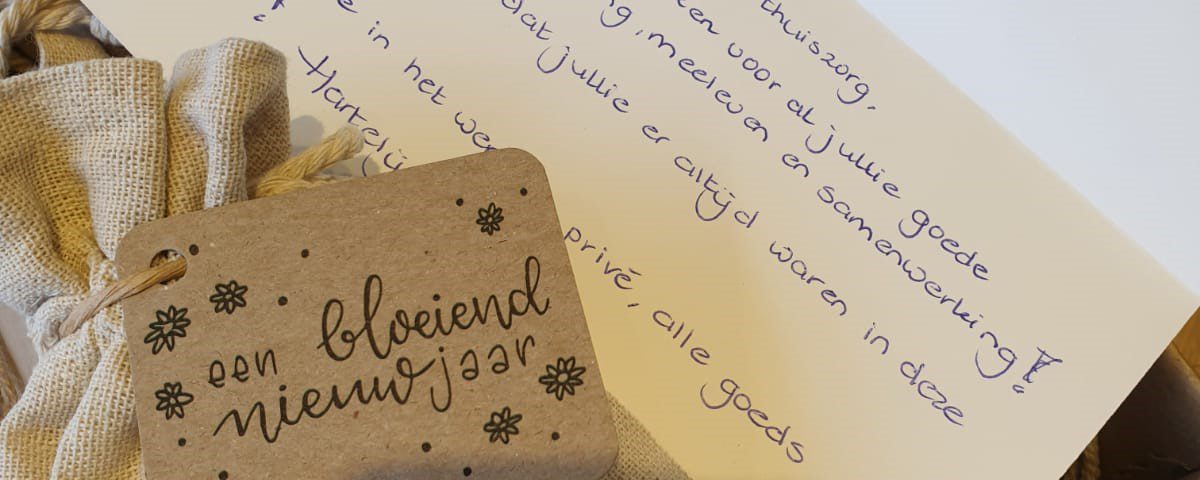 thuiszorg,
voor al jullie goede
meeleven en samenwerking!
dat jullie er altijd waren in deze
in het
privé, alle goeds
een bloeiend
nieuwjaar